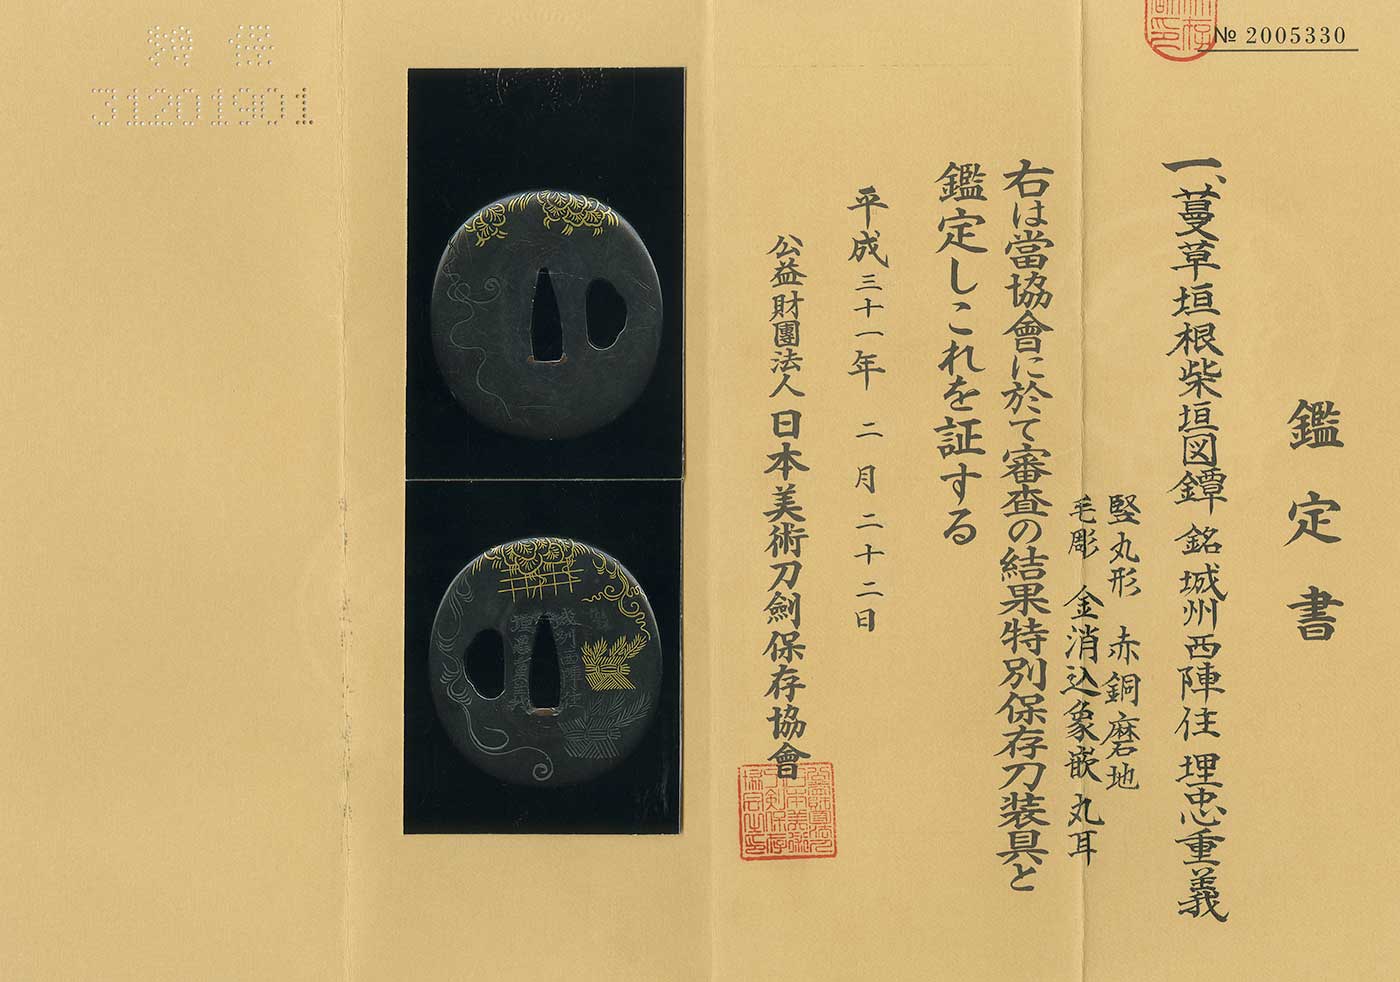 № 2005330
鑑定書
一、蔓草垣根柴垣図鐔 銘 城州西陣住 埋忠重義
竪丸形 赤銅磨地
毛彫 金消込象嵌 丸耳
右は當協會に於て審査の結果特別保存刀装具と
鑑定しこれを証する
平成三十一年 二月二十二日
公益財團法人 日本美術刀劍保存協會
31201901